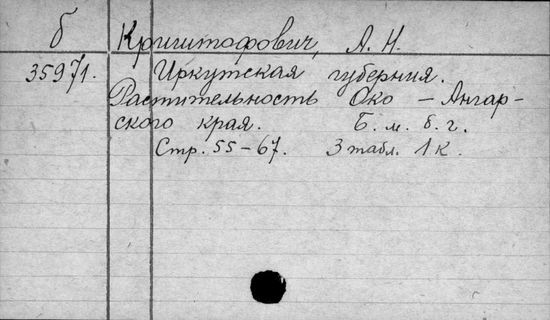 б Криштофович, А. Н.
35971. Иркутская губерния.
Растительность Око – Ангар-
ского края. Б. м. б. г.
Стр. 55–67. 3 табл. 1 к.